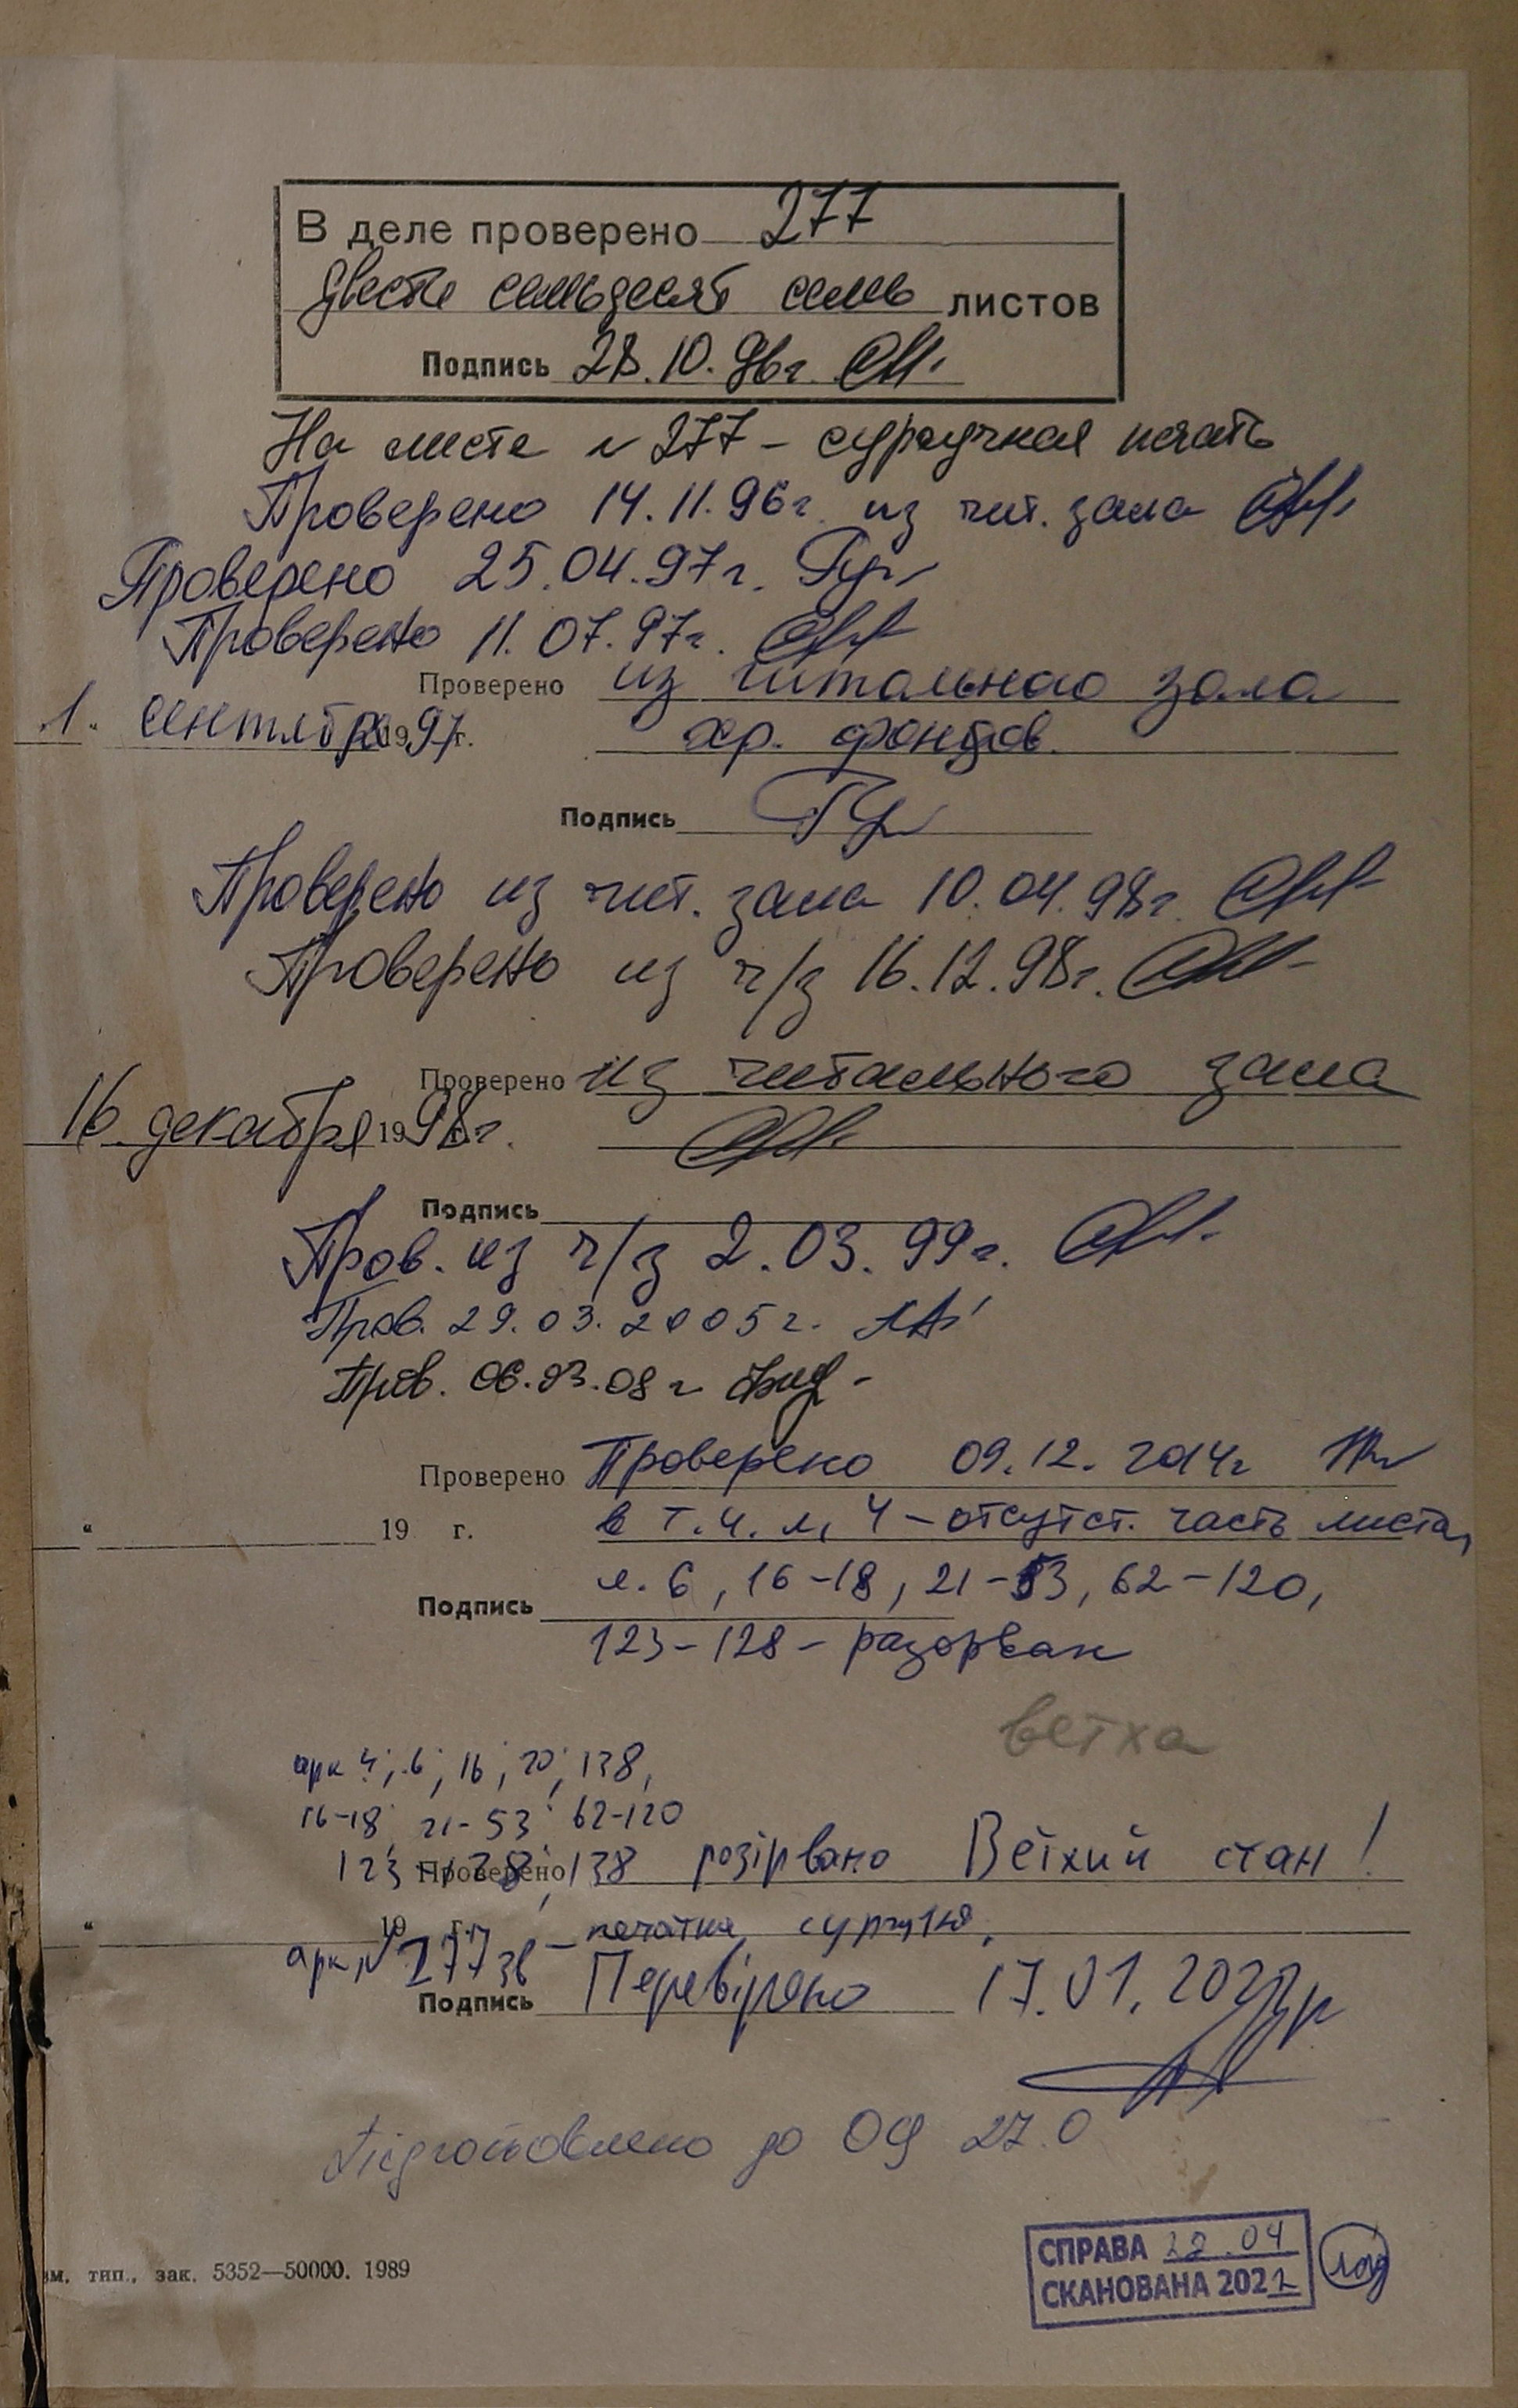 В деле проверено 277
двести семьдесят семь листов
Подпись 28.10.96г.
На листе № 277 - сургучная печать
Проверено 14.11.96г. из чит. зала
Проверено 25.04.97г.
Проверено 11.07.97г.
Проверено из читального зала
1. сентября 1997 г. хр. фондов.
Подпись
Проверено из чит. зала 10.04.98г.
Проверено из ч/з 16.12.98г.
Проверено из читального зала
16 декабря 1998г.
Подпись
Пров. из ч/з 2.03.99г.
Пров. 29.03.2005г.
Пров. 06.03.08г
Проверено Проверено 09.12.2014г
" 19 г. в т.ч. л. 4 - отсутст. часть листа,
л. 6, 16-18, 21-53, 62-120,
Подпись
123-128 - разорван
ветха
арк 4; 6; 16; 20; 138,
16-18; 21-53; 62-120
Проверено 123-138, 138 розірвано Ветхий стан!
" 19 г.
арк № 277 зв - печатка сургучна.
Подпись Перевірено 17.01.2022р
Підготовлено до ОЦ 27.0
СПРАВА 22.04
СКАНОВАНА 2022
зак. 5352—50000. 1989
тип.,